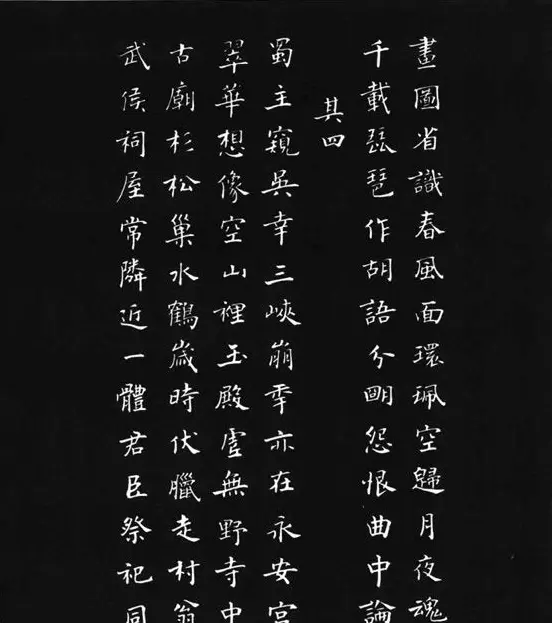 畫圖省識春風面環珮空歸月夜魂
千載琵琶作胡語分明怨恨曲中論
其四
蜀主窺吳幸三峽崩年亦在永安宮
翠華想像空山裡玉殿虛無野寺中
古廟杉松巢水鶴歲時伏臘走村翁
武侯祠屋常隣近一體君臣祭祀同